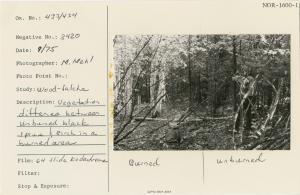 NOR-1600-1
Cn. No.: 433/434
Negative No.: 3420
Date: 9/75
Photographer: M. Mehl
Photo Point No.:
Study: Wood-Latche
Description: Vegetation
difference between
unburned black
spruce/birch in a
burned area
Film: 64 slide Kodachrome
Filter:
Stop & Exposure:
Burned
Unburned